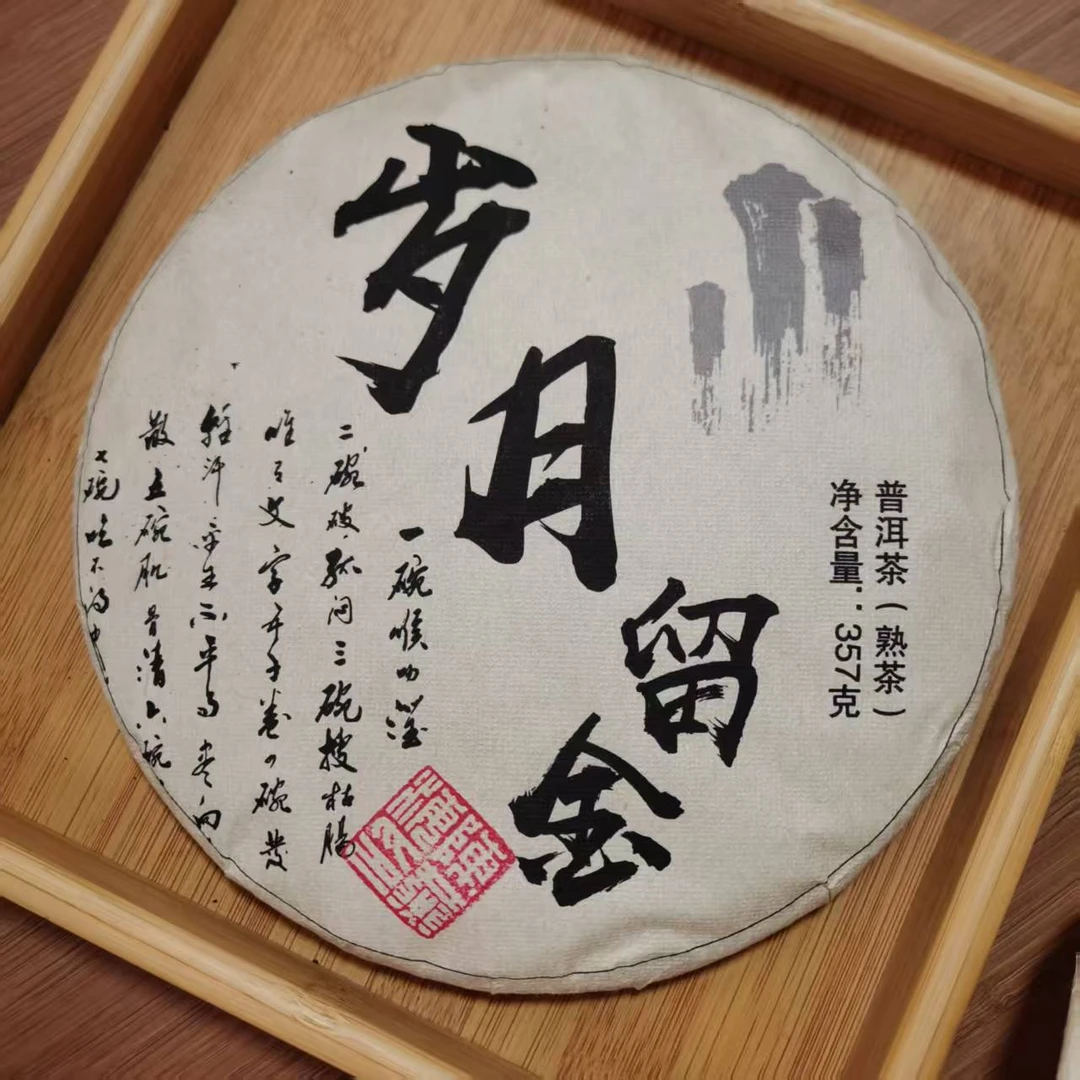 普洱茶(熟茶)
净含量:357克
岁月留金
一碗喉吻潤
二碗破孤闷三碗搜枯腸
唯有文字五千卷四碗發
輕汗平生不平事尽向
散五碗肌骨清六碗
七碗吃不得也